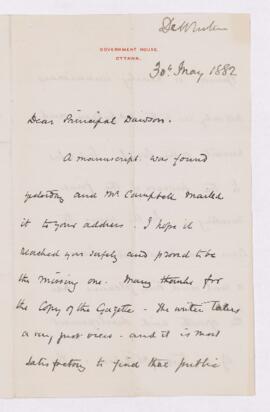 De Winton
GOVERNMENT HOUSE,
OTTAWA.
30th May 1882
Dear Principal Dawson.
A manuscript was found
yesterday and Mr Campbell mailed
it to your address. I hope it
reached you safely and proved to be
the missing one. Many thanks for
the Copy of the Gazette - The writer takes
a very just view - and it is most
satisfactory to find that public